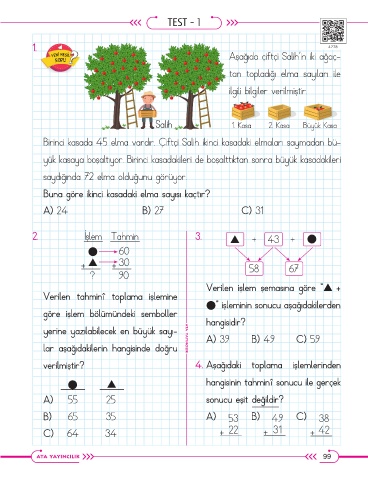 TEST - 1
1.
YENİ NESİL
SORU
4278
Aşağıda çiftçi Salih'in iki ağaç-
tan topladığı elma sayıları ile
ilgili bilgiler verilmiştir.
Salih
1. Kasa 2. Kasa Büyük Kasa
Birinci kasada 45 elma vardır. Çiftçi Salih ikinci kasadaki elmaları saymadan bü-
yük kasaya boşaltıyor. Birinci kasadakileri de boşalttıktan sonra büyük kasadakileri
saydığında 72 elma olduğunu görüyor.
Buna göre ikinci kasadaki elma sayısı kaçtır?
A) 24 B) 27 C) 31
2. İşlem Tahmin
● → 60
+ ▲ → + 30
? 90
Verilen tahminî toplama işlemine
göre işlem bölümündeki semboller
yerine yazılabilecek en büyük sayı-
lar aşağıdakilerin hangisinde doğru
verilmiştir?
● ▲
A) 55 25
B) 65 35
C) 64 34
3. ▲ + 43 + ●
58 67
Verilen işlem şemasına göre "▲ +
●" işleminin sonucu aşağıdakilerden
hangisidir?
A) 39 B) 49 C) 59
4. Aşağıdaki toplama işlemlerinden
hangisinin tahminî sonucu ile gerçek
sonucu eşit değildir?
A) 53 B) 49 C) 38
+ 22 + 31 + 42
ATA YAYINCILIK
99